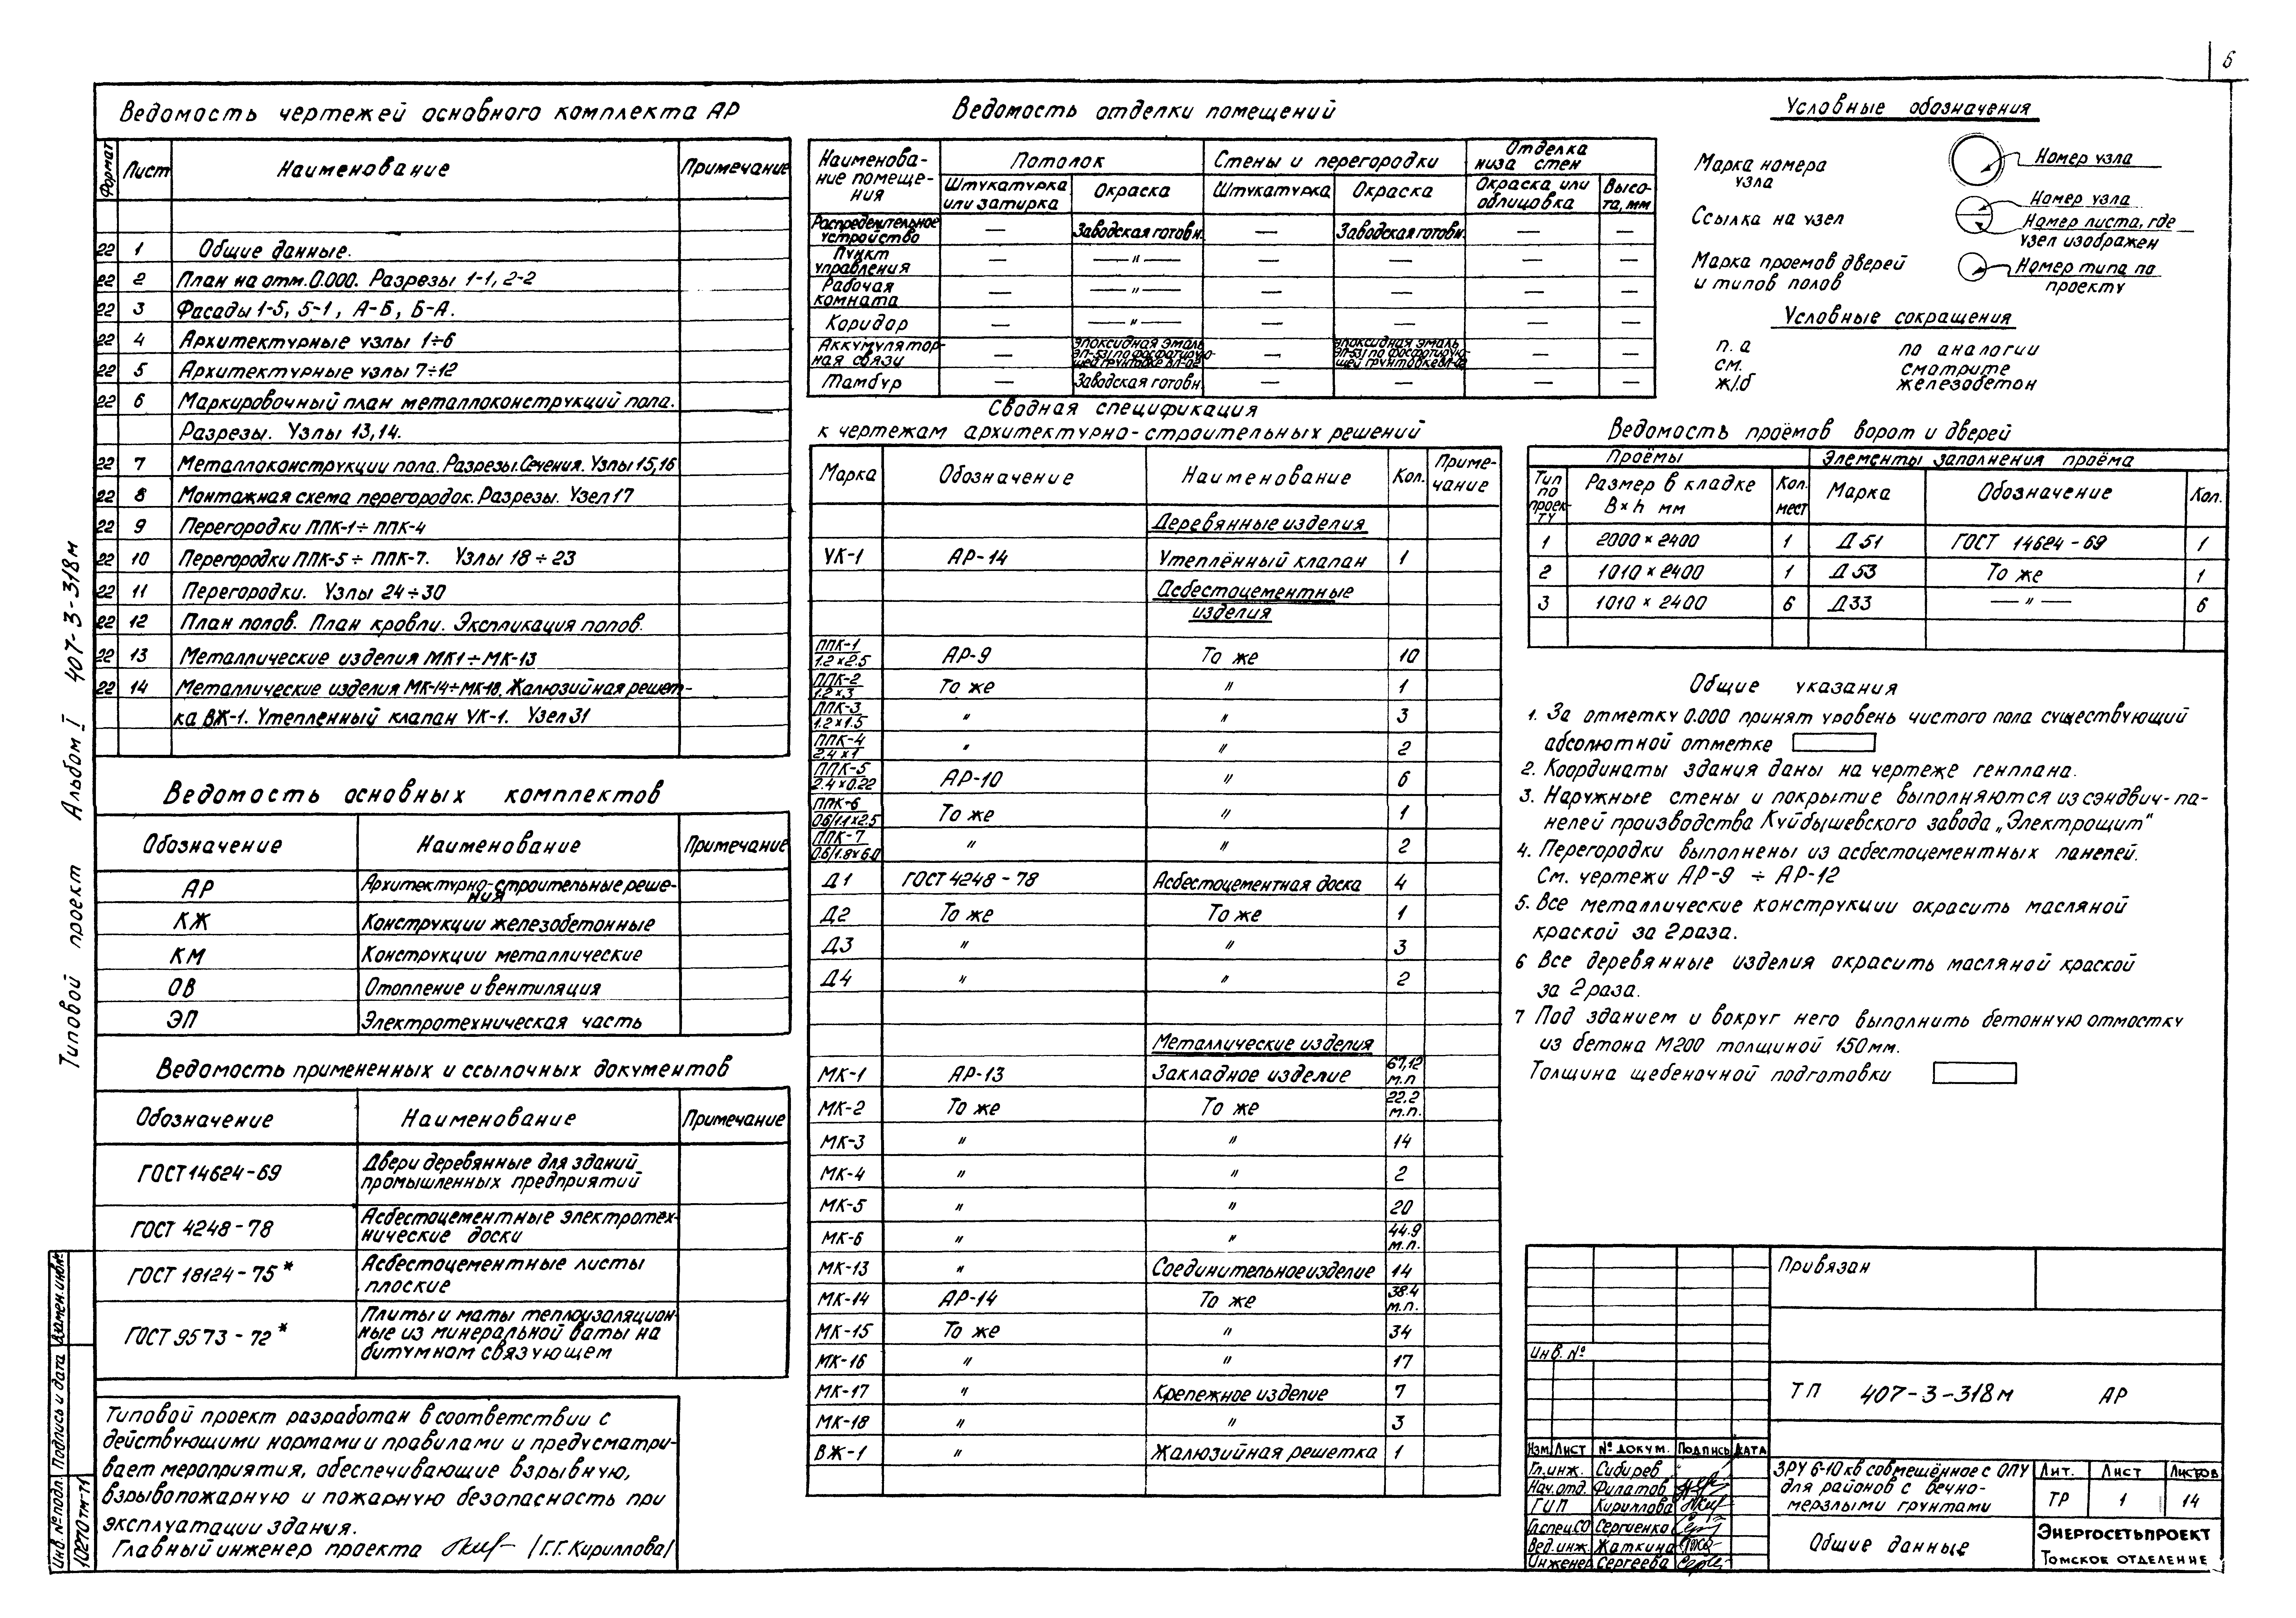 6
Ведомость чертежей основного комплекта АР
Формат Лист Наименование Примечание
22 1 Общие данные.
22 2 План на отм. 0.000. Разрезы 1-1, 2-2
22 3 Фасады 1-5, 5-1, А-Б, Б-А.
22 4 Архитектурные узлы 1÷6
22 5 Архитектурные узлы 7÷12
22 6 Маркировочный план металлоконструкций пола.
Разрезы. Узлы 13,14.
22 7 Металлоконструкции пола. Разрезы. Сечения. Узлы 15,16
22 8 Монтажная схема перегородок. Разрезы. Узел 17
22 9 Перегородки ППК-1÷ППК-4
22 10 Перегородки ППК-5÷ППК-7. Узлы 18÷23
22 11 Перегородки. Узлы 24÷30
22 12 План полов. План кровли. Экспликация полов.
22 13 Металлические изделия МК1÷МК-13
22 14 Металлические изделия МК-14÷МК-18. Жалюзийная решет-
ка ВЖ-1. Утепленный клапан УК-1. Узел 31
Ведомость основных комплектов
Обозначение Наименование Примечание
АР Архитектурно-строительные реше-
ния
КЖ Конструкции железобетонные
КМ Конструкции металлические
ОВ Отопление и вентиляция
ЭП Электротехническая часть
Ведомость примененных и ссылочных документов
Обозначение Наименование Примечание
ГОСТ 14624-69 Двери деревянные для зданий
промышленных предприятий
ГОСТ 4248-78 Асбестоцементные электротех-
нические доски
ГОСТ 18124-75* Асбестоцементные листы
плоские
ГОСТ 9573-72* Плиты и маты теплоизоляцион-
ные из минеральной ваты на
битумном связующем
Типовой проект разработан в соответствии с
действующими нормами и правилами и предусматри-
вает мероприятия, обеспечивающие взрывную,
взрывопожарную и пожарную безопасность при
эксплуатации здания.
Главный инженер проекта /Г.Г.Кириллова/
Типовой проект Альбом I 407-3-318м
Инв. № подл. Подпись и дата Взамен. инв.№
10270тм-т1
Ведомость отделки помещений
Наименова-
ние помеще-
ния
Потолок Стены и перегородки Отделка
низа стен
Штукатурка
или затирка
Окраска Штукатурка Окраска Окраска или
облицовка
Высо-
та, мм
Распределительное
устройство
— Заводская готовн. — Заводская готовн. — —
Пункт
управления
— —"— — — — —
Рабочая
комната
— —"— — — — —
Коридор — —"— — — — —
Аккумулятор-
ная связи
— эпоксидная эмаль
ЭП-531 по фосфатирую-
щей грунтовке ВЛ-02
— эпоксидная эмаль
ЭП-531 по фосфатирую-
щей грунтовке ВЛ-02
— —
Тамбур — Заводская готовн. — — — —
Сводная спецификация
к чертежам архитектурно-строительных решений
Марка Обозначение Наименование Кол. Приме-
чание
Деревянные изделия
УК-1 АР-14 Утеплённый клапан 1
Асбестоцементные
изделия
ППК-1
1.2×2.5
АР-9 То же 10
ППК-2
1.2×3
То же " 1
ППК-3
1.2×1.5
" " 3
ППК-4
2.4×1
" " 2
ППК-5
2.4×0.22
АР-10 " 6
ППК-6
0.6/1.1×2.5
То же " 1
ППК-7
0.6/1.8×6.0
" " 2
Д1 ГОСТ 4248-78 Асбестоцементная доска 4
Д2 То же То же 1
Д3 " " 3
Д4 " " 2
Металлические изделия
МК-1 АР-13 Закладное изделие 67,12
м.п
МК-2 То же То же 22.2
м.п.
МК-3 " " 14
МК-4 " " 2
МК-5 " " 20
МК-6 " " 44.9
м.п.
МК-13 " Соединительное изделие 14
МК-14 АР-14 То же 38.4
м.п.
МК-15 То же " 34
МК-16 " " 17
МК-17 " Крепежное изделие 7
МК-18 " " 3
ВЖ-1 " Жалюзийная решетка 1
Условные обозначения
Марка номера
узла
Номер узла
Ссылка на узел
Номер узла
Номер листа, где
узел изображен
Марка проемов дверей
и типов полов
Номер типа по
проекту
Условные сокращения
п. а по аналогии
см. смотрите
ж/б железобетон
Ведомость проёмов ворот и дверей
Проёмы Элементы заполнения проёма
Тип
по
проек-
ту
Размер в кладке
В×h мм
Кол.
мест
Марка Обозначение Кол.
1 2000×2400 1 Д51 ГОСТ 14624-69 1
2 1010×2400 1 Д53 То же 1
3 1010×2400 6 Д33 —"— 6
Общие указания
1. За отметку 0.000 принят уровень чистого пола существующий
абсолютной отметке
2. Координаты здания даны на чертеже генплана.
3. Наружные стены и покрытие выполняются из сэндвич-па-
нелей производства Куйбышевского завода „Электрощит"
4. Перегородки выполнены из асбестоцементных панелей.
См. чертежи АР-9 ÷ АР-12
5. Все металлические конструкции окрасить масляной
краской за 2 раза.
6 Все деревянные изделия окрасить масляной краской
за 2 раза.
7 Под зданием и вокруг него выполнить бетонную отмостку
из бетона М200 толщиной 150мм.
Толщина щебеночной подготовки
Привязан
Инв. №
ТП 407-3-318м АР
Изм. Лист № докум. Подпись Дата
Гл.инж. Сибирев
Нач.отд. Филатов
ГИП Кириллова
Гл.спец.СО Сергиенко
Вед.инж. Жаткина
Инженер Сергеева
ЗРУ 6-10 кв совмещённое с ОПУ
для районов с вечно-
мерзлыми грунтами
Лит. Лист Листов
ТР 1 14
Общие данные
Энергосетьпроект
Томское отделение